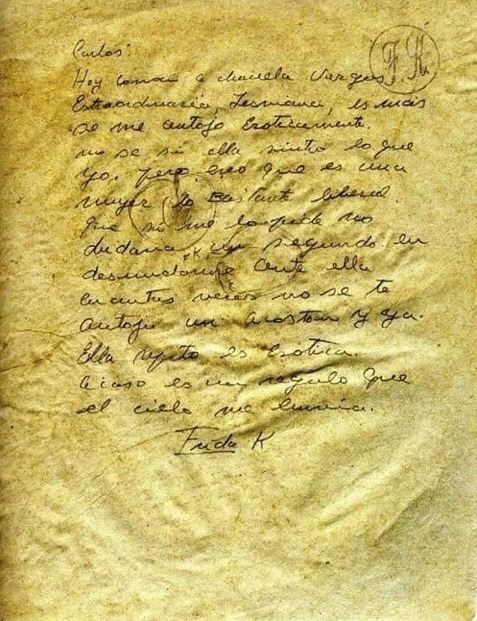 Carlos:
F. K.
Hoy conocí a chavela Vargas
Extraordinaria, Lesviana, es más
se me antojo Eroticamente
no se si ella sintio lo que
yo. pero creo que es una
mujer lo Bastante liberal
Que si me lo pide no
dudaria un segundo en
F.K.
desnudarme ante ella
Cuantas veces no se te
antoja un acoston y ya.
Ella repito es Erotica.
acaso es un regalo que
el cielo me enviá.
Frida K